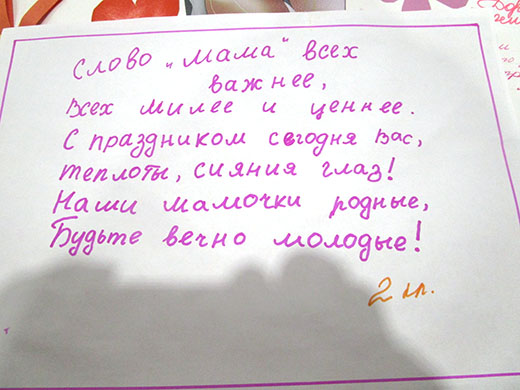 Слово "мама" всех
важнее,
Всех милее и ценнее.
С праздником сегодня Вас,
теплоты, сияния глаз!
Наши мамочки родные,
Будьте вечно молодые!